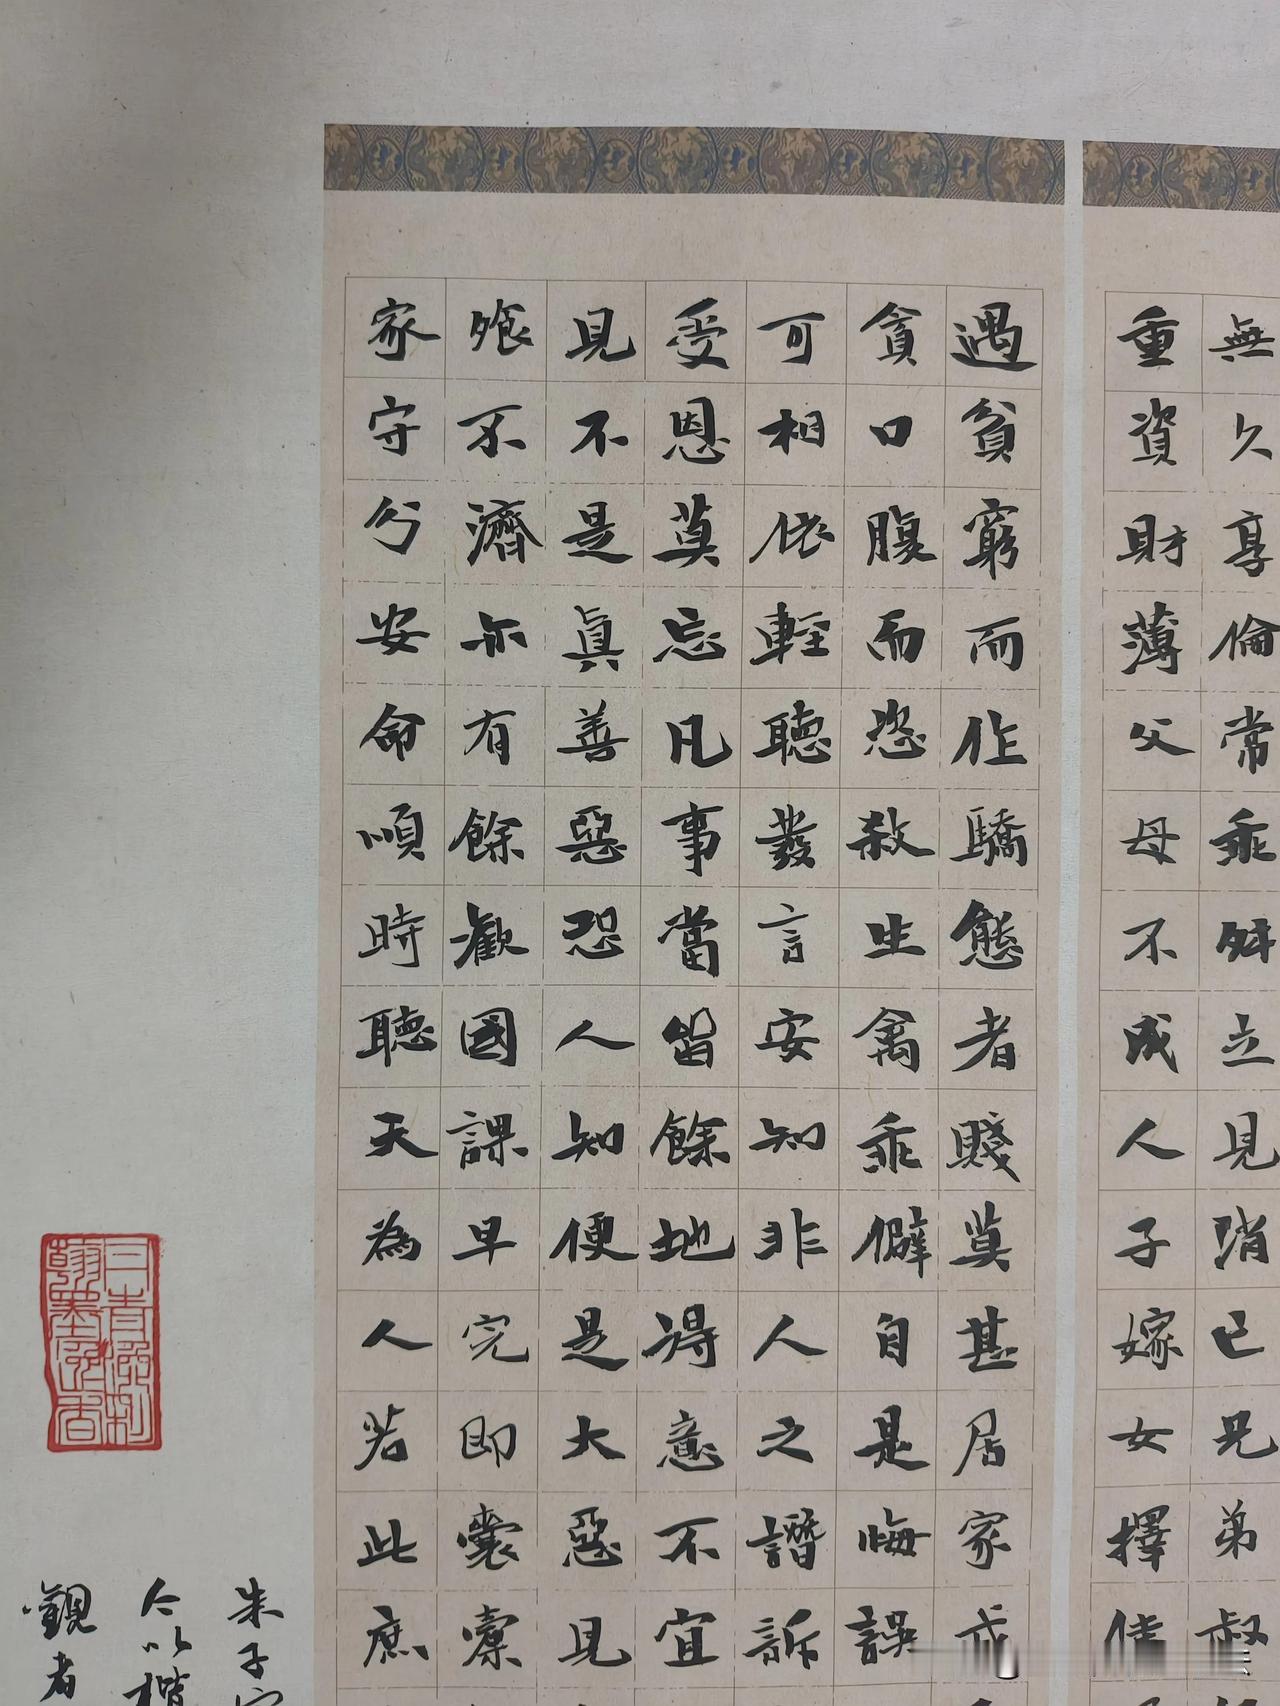 無久享倫常乖舛立見消已兄弟叔
重資財薄父母不成人子嫁女擇佳
遇貧窮而作驕態者賤莫甚居家戒
貪口腹而恣殺生禽乖僻自是悔誤
可相依輕聽發言安知非人之譖訴
受恩莫忘凡事當留餘地得意不宜
見不是真善惡恐人知便是大惡見
飱不濟亦有餘歡國課早完即囊橐
家守分安命順時聽天為人若此庶
朱子
今以楷
觀者